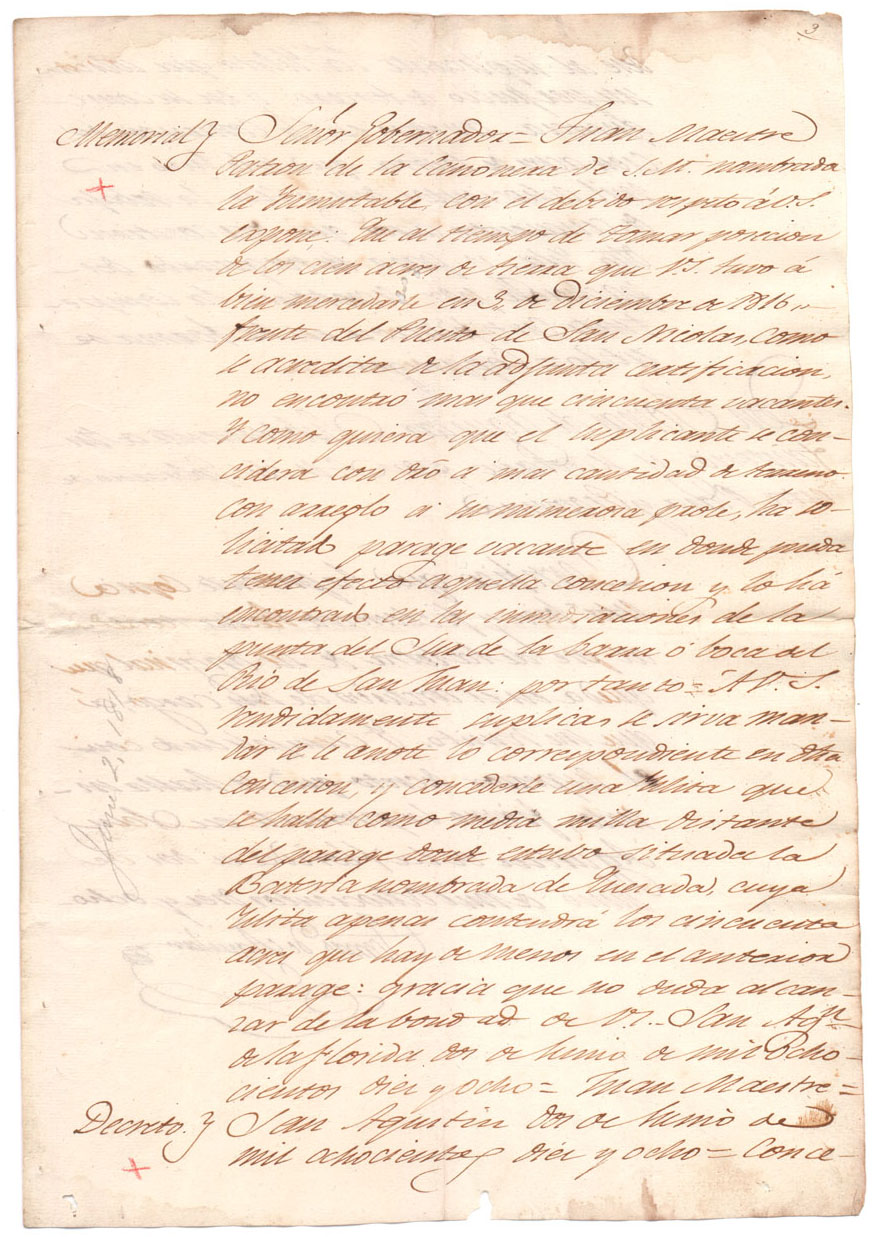 3
Memorial } Señor Gobernador = Juan Maestre
Patron de la Cañonera de S. M. nombrada
la Inmutable, con el debido respeto á V. S.
expone: Que al tiempo de tomar posicion
de los cien acres de tierra que V. S. tuvo á
bien mercedarle en 3,, de Diciembre de 1816,,
frente del Puesto de San Nicolas, como
se acredita de la adjunta certificacion,
no encontró mas que cincuenta vacantes.
Y como quiera que el suplicante se con-
cidera con dro a mas cantidad de terreno
con arreglo a su numerosa prole, ha so-
licitado parage vacante en donde pueda
tener efecto aquella concesion y lo há
encontrado en las inmediaciones de la
punta del Sur de la barra ó boca del
Rio de San Juan: por tanto = Á V. S.
rendidamente suplica se sirva man-
dar se le anote lo correspondiente en dha
Concesion, y concederle una Yslita que
se halla como media milla distante
del parage donde estubo situada la
Bateria nombrada de Quesada, cuya
Yslita apenas contendrá los cincuenta
acres que hay de menos en el anterior
parage: gracia que no duda alcan-
zar de la bondad de V. S. San Agn
de la Florida dos de Junio de mil ocho-
cientos diez y ocho = Juan Maestre =
Decreto. } San Agustin dos de Junio de
mil ochocientos diez y ocho = Conce-
June 2, 1818